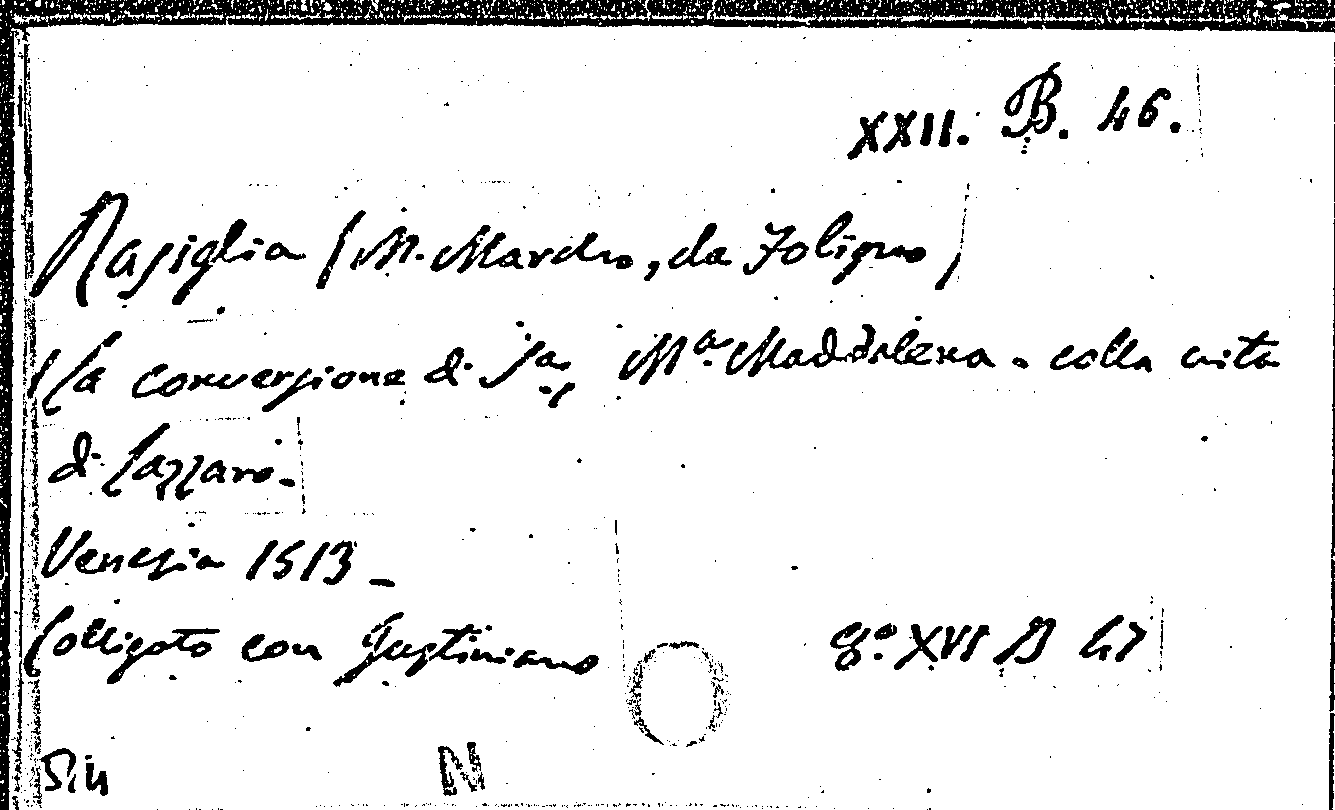 XXII. B. 46.
Rasiglia (M. Marcho, da Foligno)
La conversione di Sa, Ma. Maddalena. colla vita
di Lazzaro.
Venezia 1513 _
Colligato con Justiniano 8.o XVI B 47
N